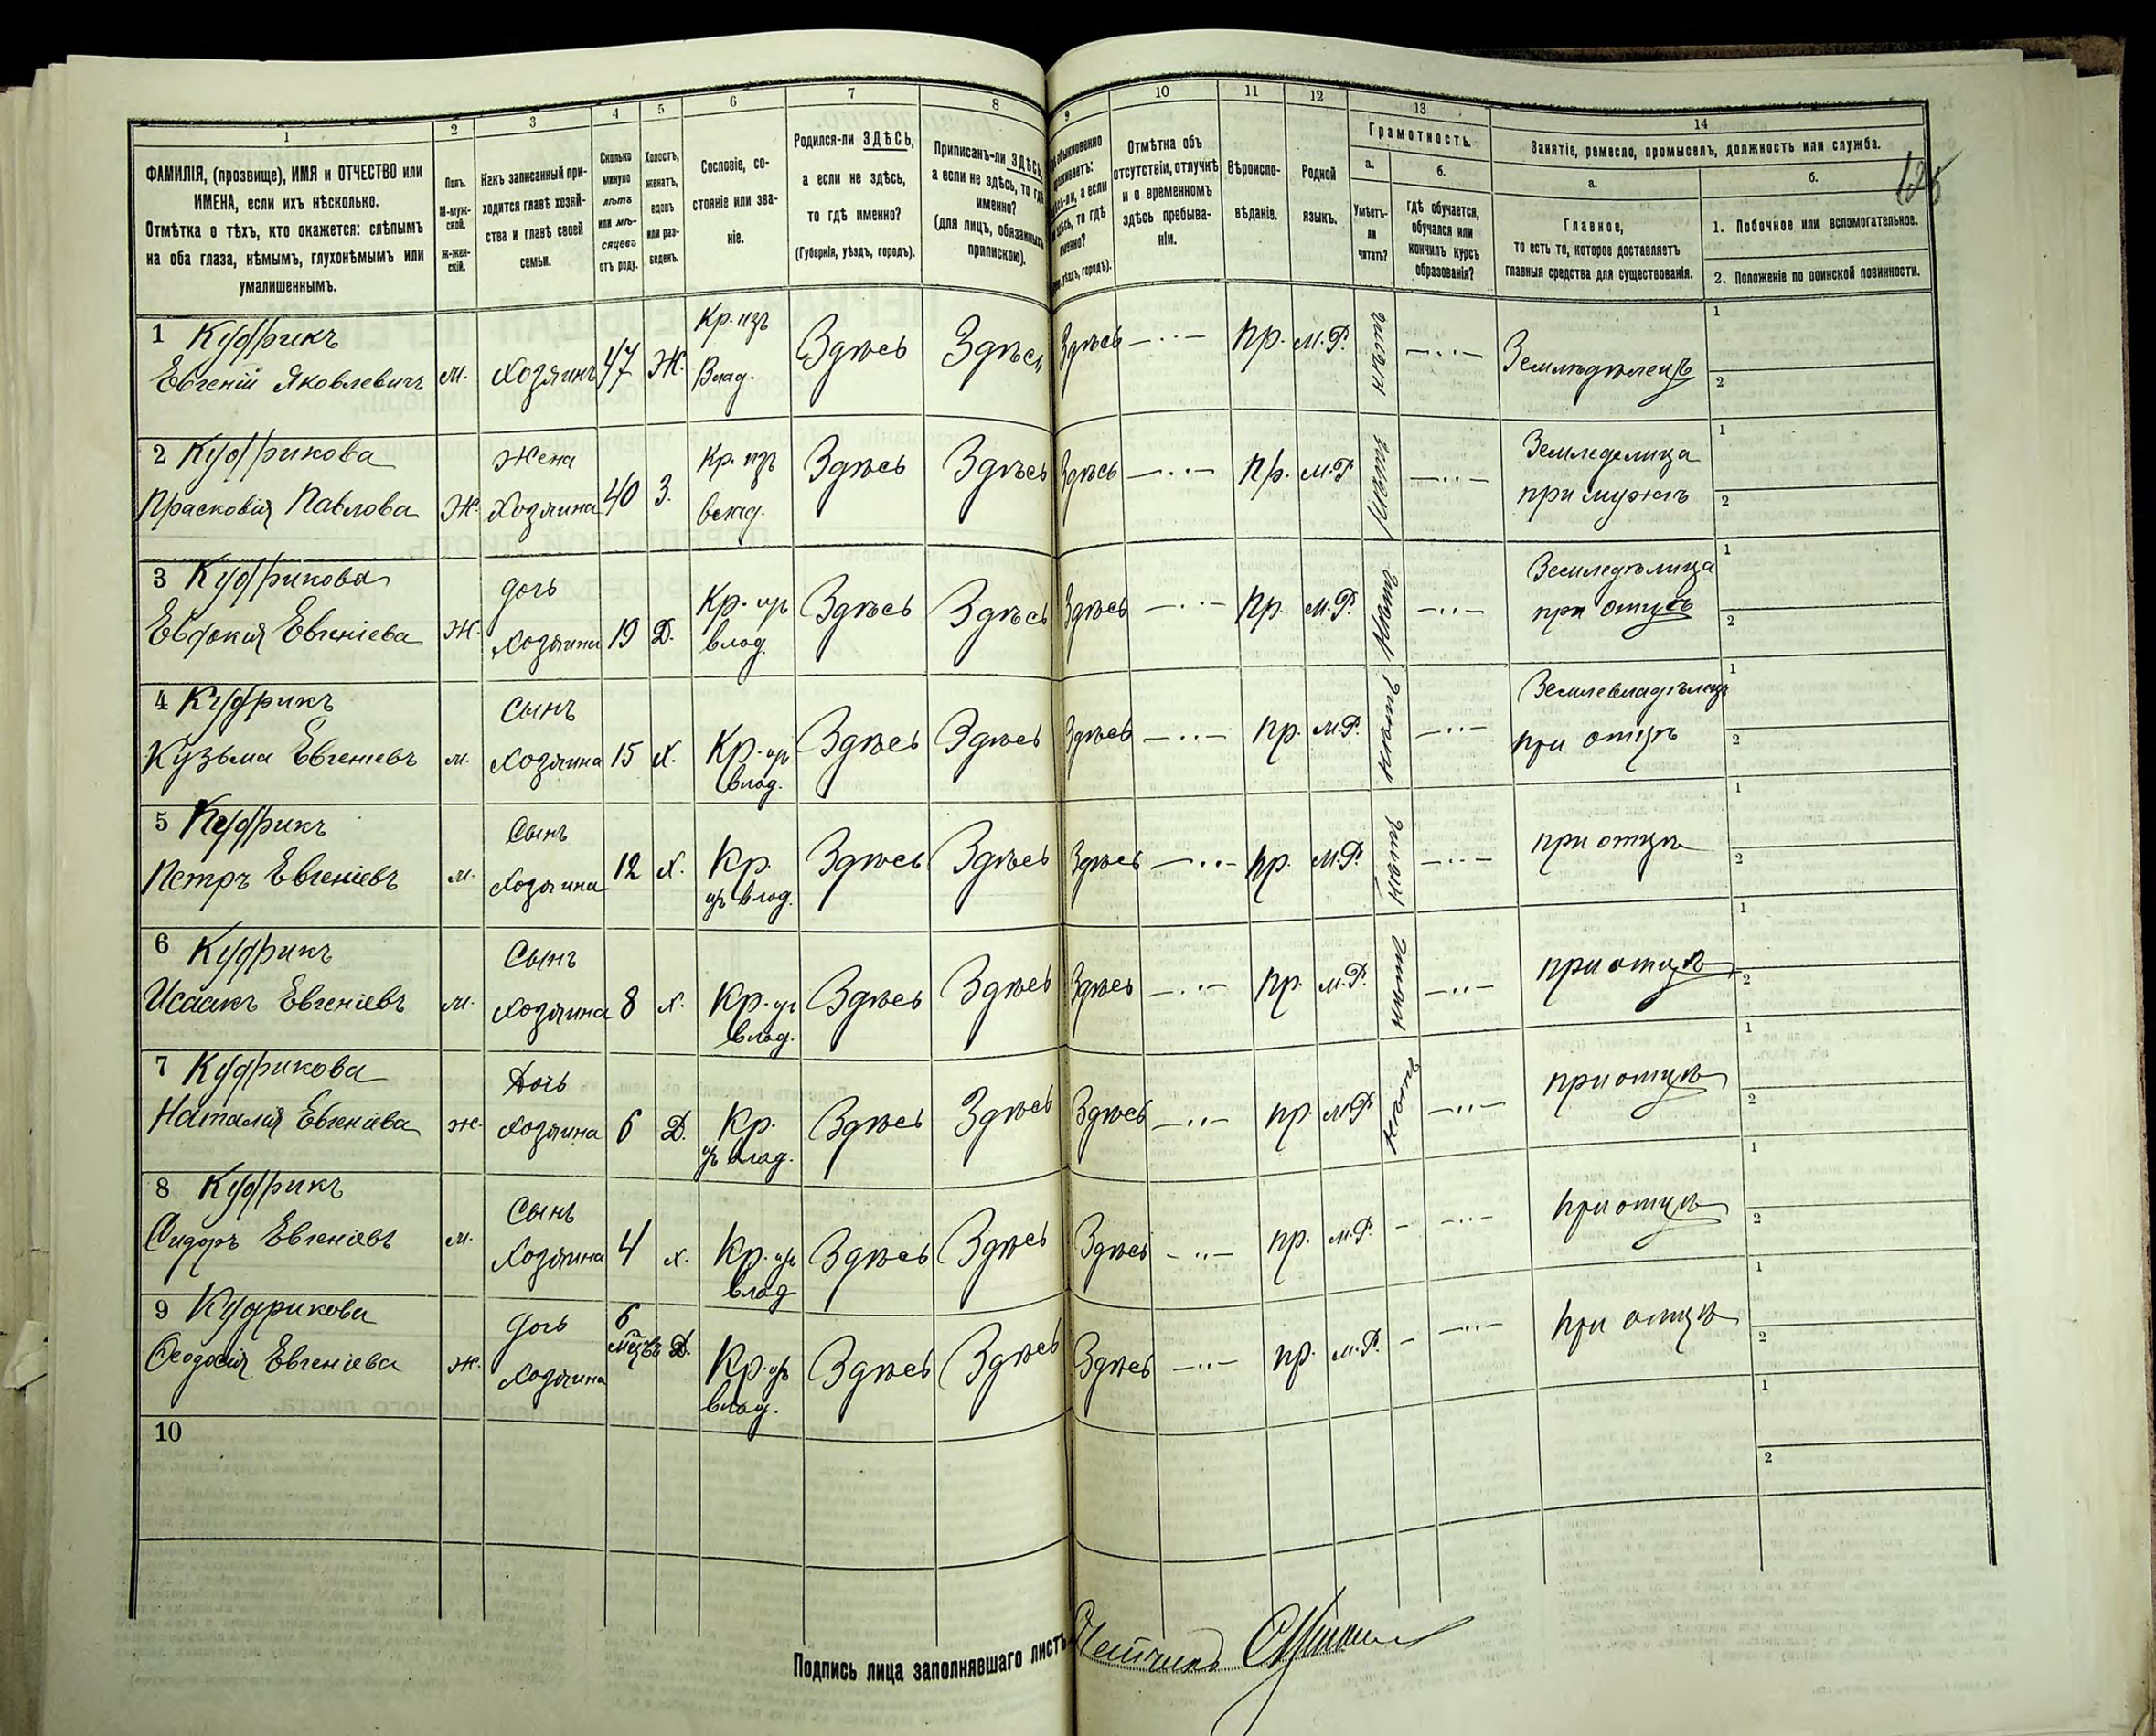 1
2
3
4
5
6
7
8
9
10
11
12
13
14
ФАМИЛІЯ, (прозвище), ИМЯ и ОТЧЕСТВО или
ИМЕНА, если ихъ нѣсколько.
Отмѣтка о тѣхъ, кто окажется: слѣпымъ
на оба глаза, нѣмымъ, глухонѣмымъ или
умалишеннымъ.
Полъ.
М-муж-
ской.
Ж-жен-
скій.
Какъ записанный при-
ходится главѣ хозяй-
ства и главѣ своей
семьи.
Сколько
минуло
лѣтъ
или мѣ-
сяцевъ
отъ роду.
Холостъ,
женатъ,
вдовъ
или раз-
веденъ.
Сословіе, со-
стояніе или зва-
ніе.
Родился-ли ЗДѢСЬ,
а если не здѣсь,
то гдѣ именно?
(Губернія, уѣздъ, городъ).
Приписанъ-ли ЗДѢСЬ,
а если не здѣсь, то гдѣ
именно?
(для лицъ, обязанныхъ
припискою).
обыкновенно
а если
здѣсь, то гдѣ
именно?
уѣздъ, городъ).
Отмѣтка объ
отсутствіи, отлучкѣ
и о временномъ
здѣсь пребыва-
ніи.
Вѣроиспо-
вѣданіе.
Родной
языкъ.
Грамотность.
а.
Умѣетъ-
ли
читать?
б.
гдѣ обучается,
обучался или
кончилъ курсъ
образованія?
Занятіе, ремесло, промыселъ, должность или служба.
а.
Главное,
то есть то, которое доставляетъ
главныя средства для существованія.
б.
1. Побочное или вспомогательное.
2. Положеніе по воинской повинности.
125
1 Кудрикъ
Евгеній Яковлевичъ м. Хозяинъ 47 Ж. Кр. изъ Влад. Здѣсь Здѣсь Здѣсь —··— пр. м.Р. нѣтъ —··— Земледѣлецъ 1 2
2 Кудрикова
Прасковія Павлова Ж. Жена Хозяина 40 З. Кр. изъ влад. Здѣсь Здѣсь Здѣсь —··— пр. м.Р. Нѣтъ —··— Земледелица при мужѣ 1 2
3 Кудрикова
Евдокія Евгеніева Ж. дочь Хозяина 19 Д. Кр. изъ влад. Здѣсь Здѣсь Здѣсь —··— пр. м.Р. Нѣтъ —··— Земледѣлица при отцѣ 1 2
4 Кудрикъ
Кузьма Евгеніевъ м. Сынъ Хозяина 15 х. Кр. изъ влад. Здѣсь Здѣсь Здѣсь —··— пр. м.Р. Нѣтъ —··— Землевладѣлецъ при отцѣ 1 2
5 Кудрикъ
Петръ Евгеніевъ м. Сынъ Хозяина 12 х. Кр. изъ влад. Здѣсь Здѣсь Здѣсь —··— пр. м.Р. Нѣтъ —··— при отцѣ 1 2
6 Кудрикъ
Исаакъ Евгеніевъ м. Сынъ Хозяина 8 х. Кр. изъ влад. Здѣсь Здѣсь Здѣсь —··— пр. м.Р. Нѣтъ —··— при отцѣ 1 2
7 Кудрикова
Наталія Евгеніева ж. Дочь Хозяина 6 Д. Кр. изъ влад. Здѣсь Здѣсь Здѣсь —··— пр. м.Р. Нѣтъ —··— при отцѣ 1 2
8 Кудрикъ
Сидоръ Евгеніевъ м. Сынъ Хозяина 4 х. Кр. изъ влад Здѣсь Здѣсь Здѣсь —··— пр. м.Р. – —··— при отцѣ 1 2
9 Кудрикова
Ѳеодосія Евгеніева ж. дочь Хозяина 6 мѣсяцъ Д. Кр. изъ влад. Здѣсь Здѣсь Здѣсь —··— пр. м.Р. – —··— при отцѣ 1 2
10 1 2
Подпись лица заполнявшаго листъ Счетчикъ